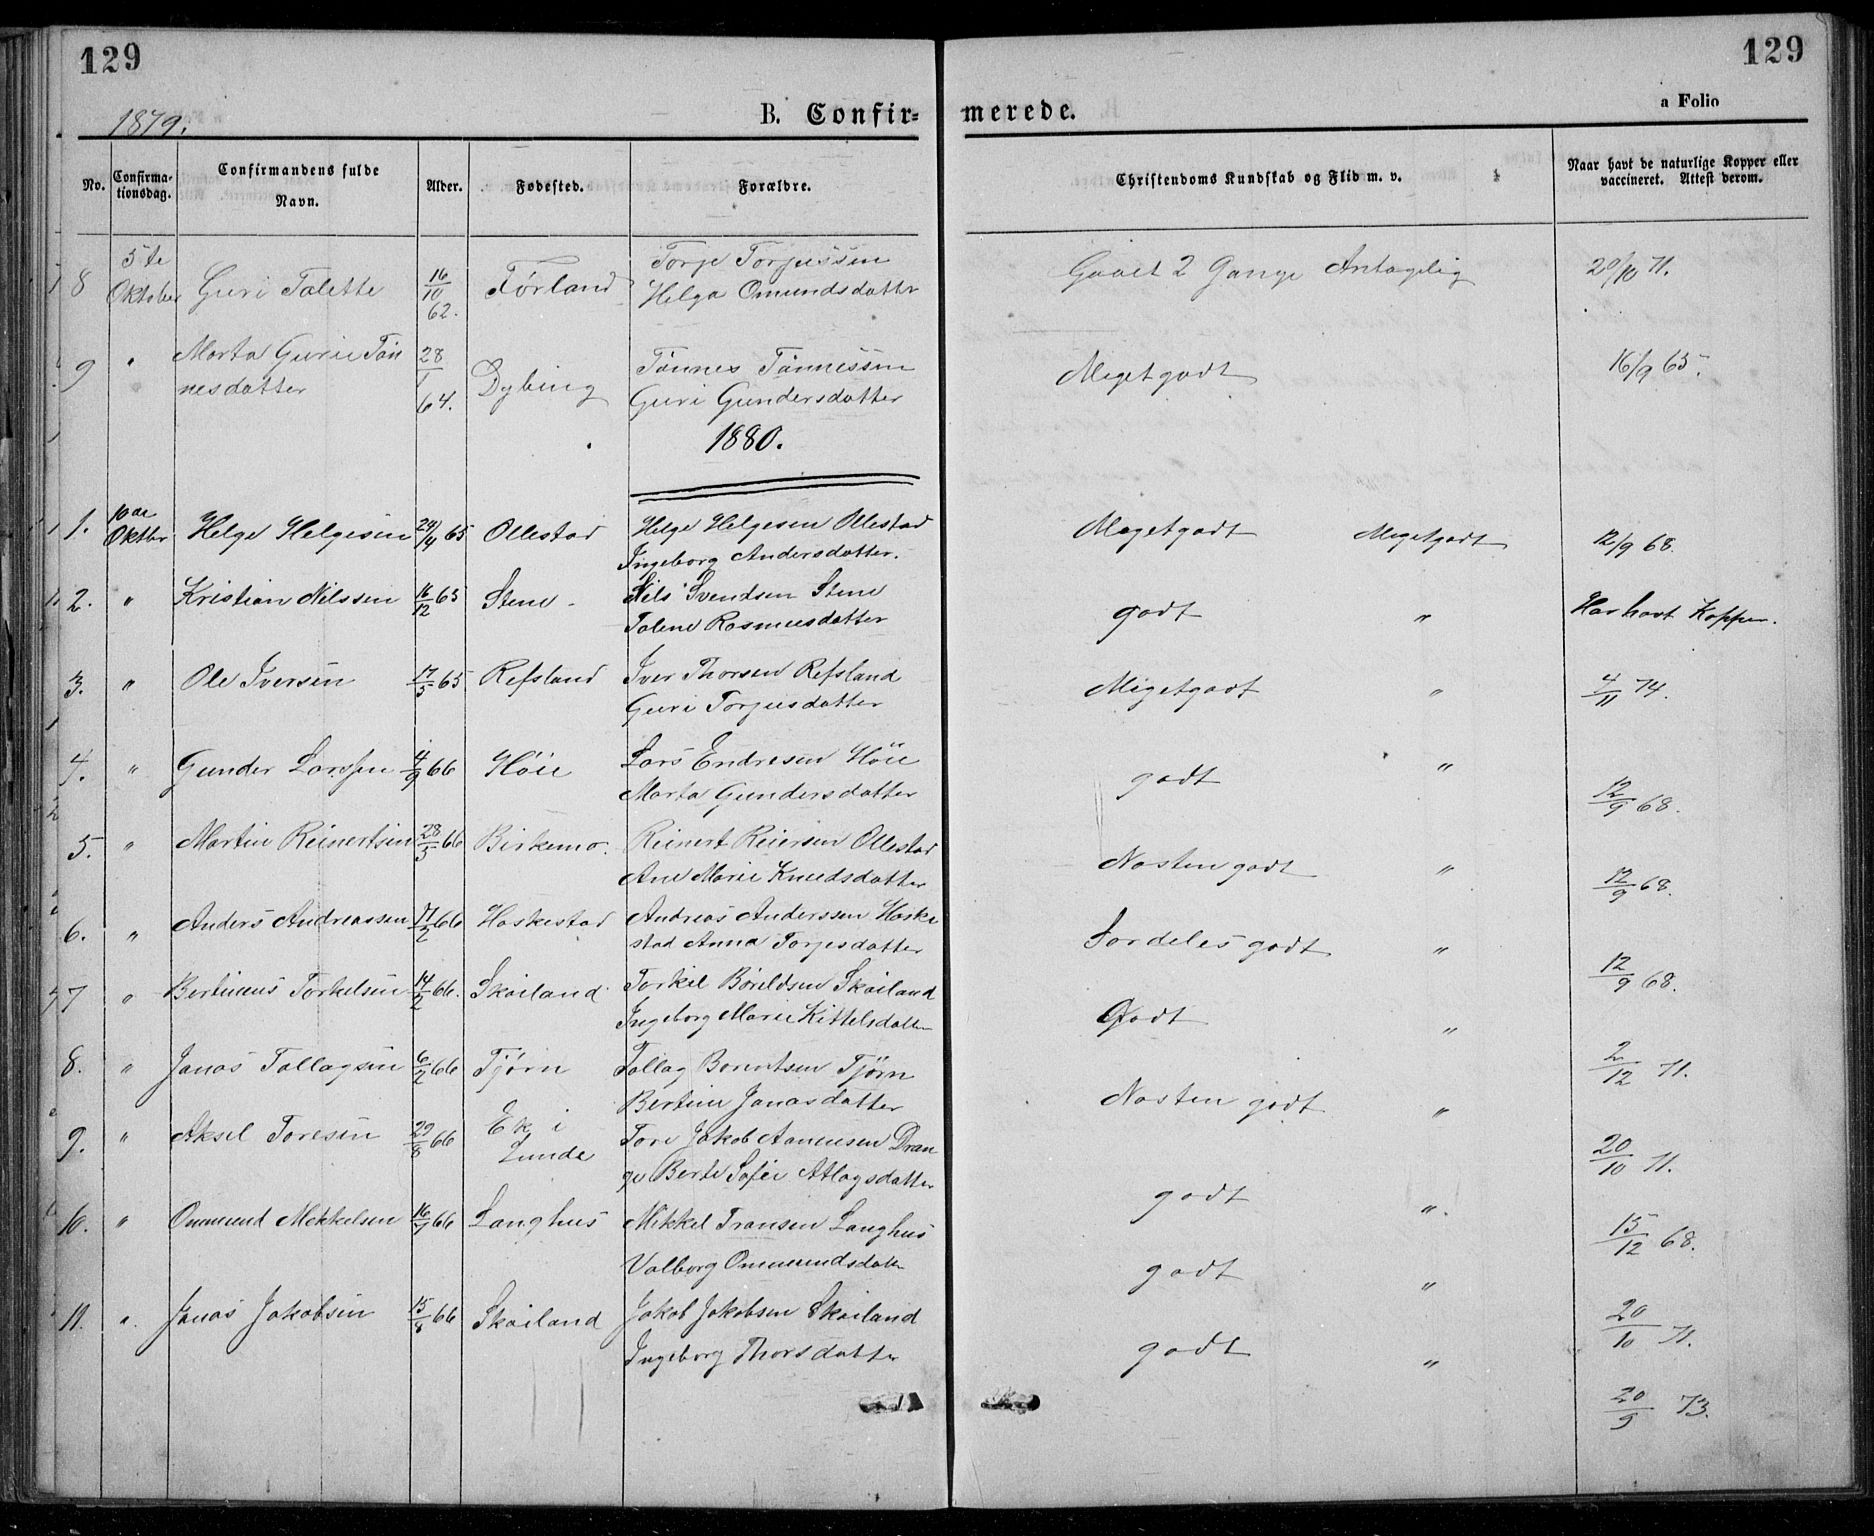 129
129
1879.
B. Confir-
merede.
a Folio
No.
Confirma-
tionsdag.
Confirmandens fulde
Navn.
Alder.
Fødested.
Forældre.
Christendoms Kundskab og Flid m. v.
Naar havt de naturlige Kopper eller
vaccineret. Attest derom.
8 5te Oktober Guri Talette 16/10 62. Førland Torje Torjussen
Helga Omundsdatter Gaaet 2 Gange Antagelig 20/10 71.
9 " Marta Gurie Tøn
nesdatter 28/1 64. Dybing Tønnes Tønnessen
Guri Gundersdatter Megetgodt 16/9 65.
1880.
1. 10de Oktbr Helge Helgesen 24/4 65 Ollestad Helge Helgesen Ollestad
Ingeborg Andersdatter. Megetgodt Megetgodt 12/9 68.
2. " Kristian Nilssen 16/12 65 Stene Nils Svendsen Stene
Talene Rasmusdatter godt " Har havt Kopper.
3. " Ole Iversen 17/5 65 Refsland Iver Thorsen Refsland
Guri Torjusdatter Megetgodt " 4/11 74.
4. " Gunder Larssen 4/9 66 Høie Lars Endresen Høie
Marta Gundersdatter godt " 12/9 68.
5. " Martin Reinertsen 28/5 66 Birkemo. Reinert Reiersen Ollestad
Ane Marie Knudsdatter Næsten godt " 12/9 68.
6. " Anders Andreassen 17/2 66 Haskestad Andreas Anderssen Haske
stad Anna Torjesdatter Særdeles godt " 12/9 68.
7 " Bertineus Torkelsen 14/2 66. Skailand Torkel Skailand
Ingeborg Marie Kittelsdatter Godt " 2/12 71.
8. " Jonas Tallagsen 6/2 66 Tjørn Tallag Tjørn
Bertine Jonasdatter Næsten godt " 20/10 71.
9. " Aksel Toresen 29/8 66 Ek i
Lunde Tore Jakob Aanensen Dran
ge Berte Sofie Atlagsdatter godt ". 15/12 68.
10. " Ommund Mikkelsen 16/9 66 Langhus Mikkel Transen Langhus
Valborg Ommundsdatter godt " 20/10 71.
11. " Jonas Jakobsen 15/8 66 Skailand Jakob Jakobsen Skailand
Ingeborg Thorsdatter godt " 20/9 73.